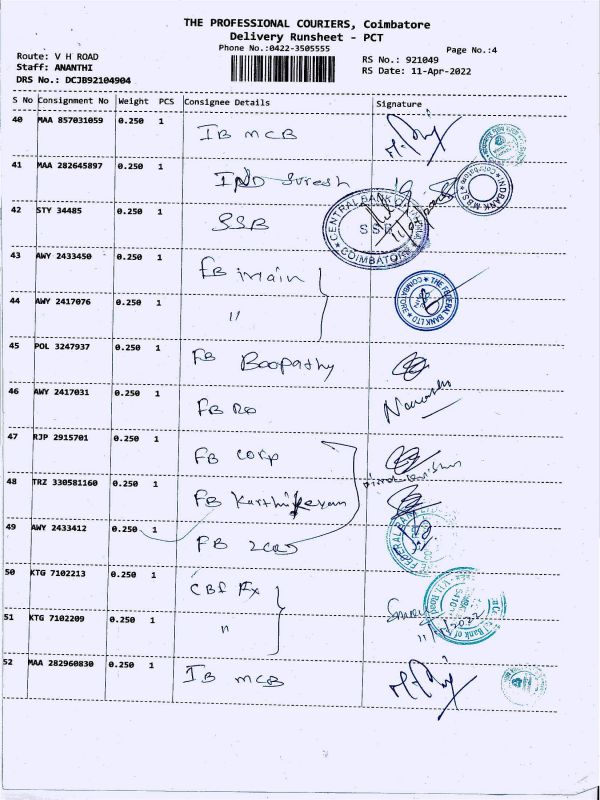 THE PROFESSIONAL COURIERS, Coimbatore
Delivery Runsheet - PCT
Phone No.:0422-3505555
Page No.:4
Route: V H ROAD
RS No.: 921049
Staff: ANANTHI
RS Date: 11-Apr-2022
DRS No.: DCJB92104904
S No Consignment No Weight PCS Consignee Details Signature
40 MAA 857031059 0.250 1 IB MCB
41 MAA 282645897 0.250 1 IND Suresh
INDBANK MBSL COIMBATORE
42 STY 34485 0.250 1 SSB
CENTRAL BANK SSB COIMBATORE
43 AWY 2433450 0.250 1 FB Main
THE FEDERAL BANK LTD COIMBATORE
44 AWY 2417076 0.250 1 "
45 POL 3247937 0.250 1 FB Boopathy
46 AWY 2417031 0.250 1 FB RO
47 RJP 2915701 0.250 1 FB Corp
48 TRZ 330581160 0.250 1 FB Karthikeyan
49 AWY 2433412 0.250 1 FB
FEDERAL BANK
50 KTG 7102213 0.250 1 CBI FX
51 KTG 7102209 0.250 1 "
Bank of
52 MAA 282960830 0.250 1 IB MCB